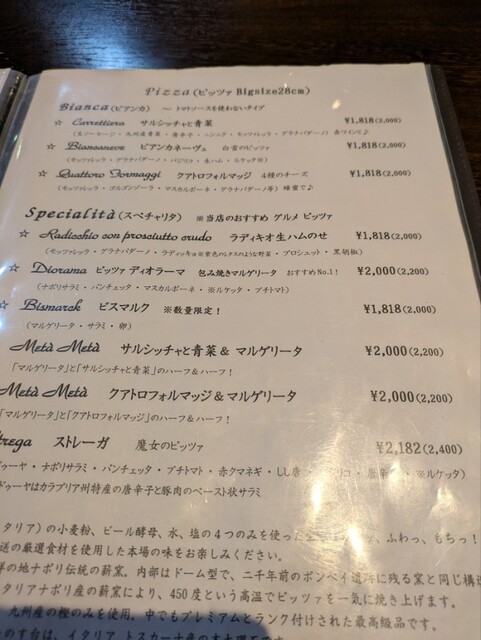 Pizza(ピッツァ Bigsize28cm)
Bianca(ビアンカ) ～ トマトソースを使わないタイプ
☆ Carrettiera サルシッチャと青菜 ¥1,818(2,000)
(生ソーセージ・九州産青菜・唐辛子・ニンニク・モッツァレッラ・グラナパダーノ) 赤ワインと♪
☆ Biancaneve ビアンカネーヴェ 白雪のピッツァ ¥1,818(2,000)
(モッツァレッラ・グラナパダーノ・バジリコ・生ハム・ルケッタ※)
☆ Quattoro Formaggi クアトロフォルマッジ 4種のチーズ ¥1,818(2,000)
(モッツァレッラ・ゴルゴンゾーラ・マスカルポーネ・グラナパダーノ等) 蜂蜜で♪
Specialità(スペチャリタ) ※当店のおすすめ グルメ ピッツァ
☆ Radicchio con prosciutto crudo ラディキオ生ハムのせ ¥1,818(2,000)
(モッツァレッラ・グラナパダーノ・ラディッキョ※紫色のレタスのような野菜・プロシュット・黒胡椒)
☆ Diorama ピッツァ ディオラーマ 包み焼きマルゲリータ おすすめNo.1! ¥2,000(2,200)
(ナポリサラミ・パンチェッタ・マスカルポーネ・※ルケッタ・プチトマト)
☆ Bismarck ビスマルク ※数量限定! ¥1,818(2,000)
(マルゲリータ・サラミ・卵)
Metà Metà サルシッチャと青菜 & マルゲリータ ¥2,000(2,200)
「マルゲリータ」と「サルシッチャと青菜」のハーフ&ハーフ!
Metà Metà クアトロフォルマッジ & マルゲリータ ¥2,000(2,200)
「マルゲリータ」と「クアトロフォルマッジ」のハーフ&ハーフ!
trega ストレーガ 魔女のピッツァ ¥2,182(2,400)
ドゥーヤ・ナポリサラミ・パンチェッタ・プチトマト・赤タマネギ・しし唐・ ・※ルケッタ)
ドゥーヤはカラブリア州特産の唐辛子と豚肉のペースト状サラミ
タリア)の小麦粉、ビール酵母、水、塩の4つのみを使った ふわっ、もちっ!
送の厳選食材を使用した本場の味をお楽しみください。
祥の地ナポリ伝統の薪窯。内部はドーム型で、二千年前のポンペイ遺跡に残る窯と同じ構造
イタリアナポリ産の薪窯により、450度という高温でピッツァを一気に焼き上げます。
九州産の樫のみを使用。中でもプレミアムとランク付けされた最高級品です。